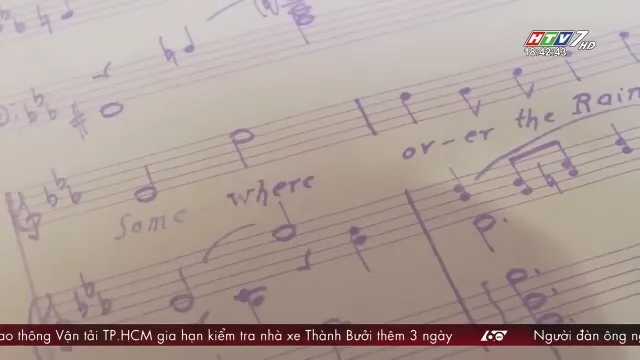 HTV7 HD
18:42:43
Some-where or-er the Rain
ao thông Vận tải TP.HCM gia hạn kiểm tra nhà xe Thành Bưởi thêm 3 ngày 60 Người đàn ông n